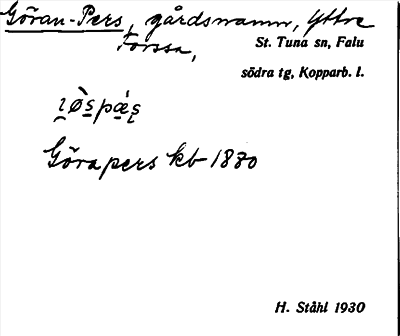 Göran-Pers, gårdsnamn, Yttre
Forssa,
St. Tuna sn, Falu
södra tg, Kopparb. l.
Görapers kb 1830
H. Ståhl 1930